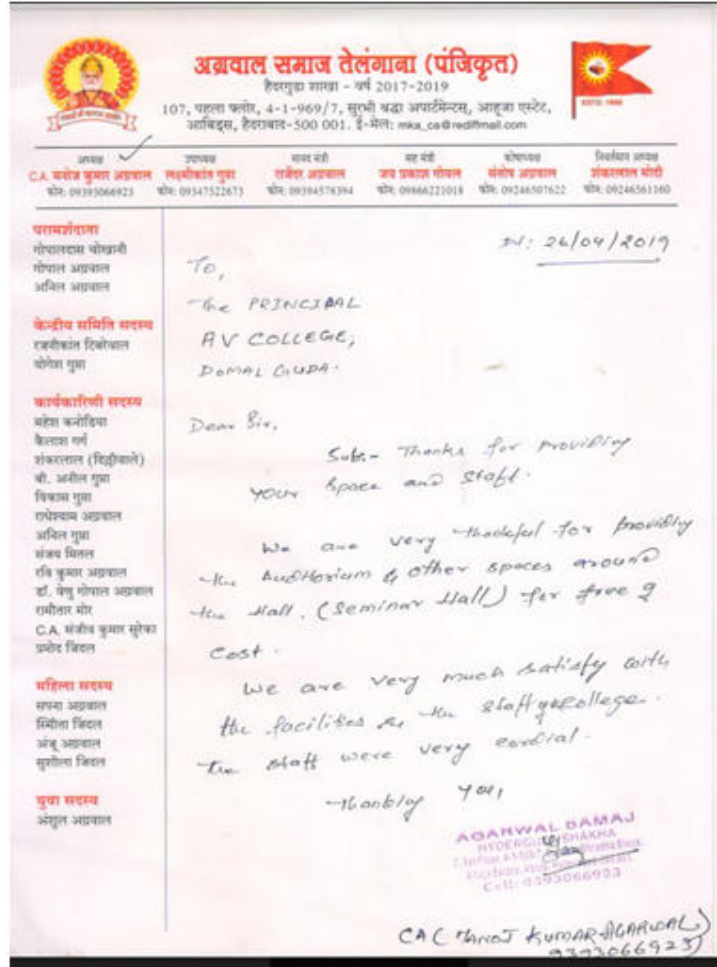 अग्रवाल समाज तेलंगाना (पंजिकृत)
हैदरगुडा शाखा - वर्ष 2017-2019
107, पहला फ्लोर, 4-1-969/7, सुरभी श्रद्धा अपार्टमेन्टस्, आहूजा एस्टेट,
आबिड्स, हैदराबाद-500 001. ई-मेल: mka_ca@rediffmail.com
अध्यक्ष
C.A. मनोज कुमार अग्रवाल
फोन: 09393066923
उपाध्यक्ष
लक्ष्मीकांत गुप्ता
फोन: 09347322673
मानद मंत्री
राजेंदर अग्रवाल
फोन: 09394578394
सह मंत्री
जय प्रकाश गोयल
फोन: 09866221018
कोषाध्यक्ष
संतोष अग्रवाल
फोन: 09246507622
निवर्तमान अध्यक्ष
शंकरलाल मोदी
फोन: 09246561160
परामर्शदाता
गोपालदास चोखानी
गोपाल अग्रवाल
अनिल अग्रवाल
केन्द्रीय समिति सदस्य
रजनीकांत टिबरेवाल
योगेश गुप्ता
कार्यकारिणी सदस्य
महेश कनोडिया
कैलाश गर्ग
शंकरलाल (दिल्लीवाले)
बी. अनील गुप्ता
विकास गुप्ता
राधेश्याम अग्रवाल
अनिल गुप्ता
संजय मित्तल
रवि कुमार अग्रवाल
डॉ. वेणु गोपाल अग्रवाल
रामौतार मोर
C.A. संजीव कुमार सुरेका
प्रमोद जिंदल
महिला सदस्य
सपना अग्रवाल
स्मिता जिंदल
अंजू अग्रवाल
सुशीला जिंदल
युवा सदस्य
अंशुल अग्रवाल
Dt: 26/04/2019
To,
The PRINCIPAL
AV COLLEGE,
DOMAL GUDA.
Dear Sir,
Sub:- Thanks for providing
your space and staff.
We are very thankful for providing
the Auditorium & other spaces around
the Hall. (Seminar Hall) for free of
cost.
We are very much satisfy with
the facilities & the staff of college.
The staff were very cordial.
Thanking you,
AGARWAL SAMAJ
HYDERGUDA SHAKHA
Cell: 9393066923
CA (MANOJ KUMAR AGARWAL)
9393066923)